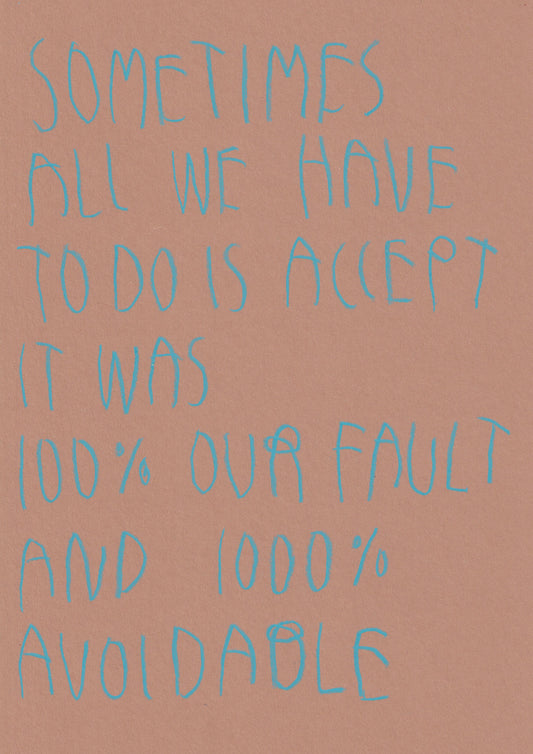 SOMETIMES
ALL WE HAVE
TO DO IS ACCEPT
IT WAS
100% OUR FAULT
AND 1000%
AVOIDABLE